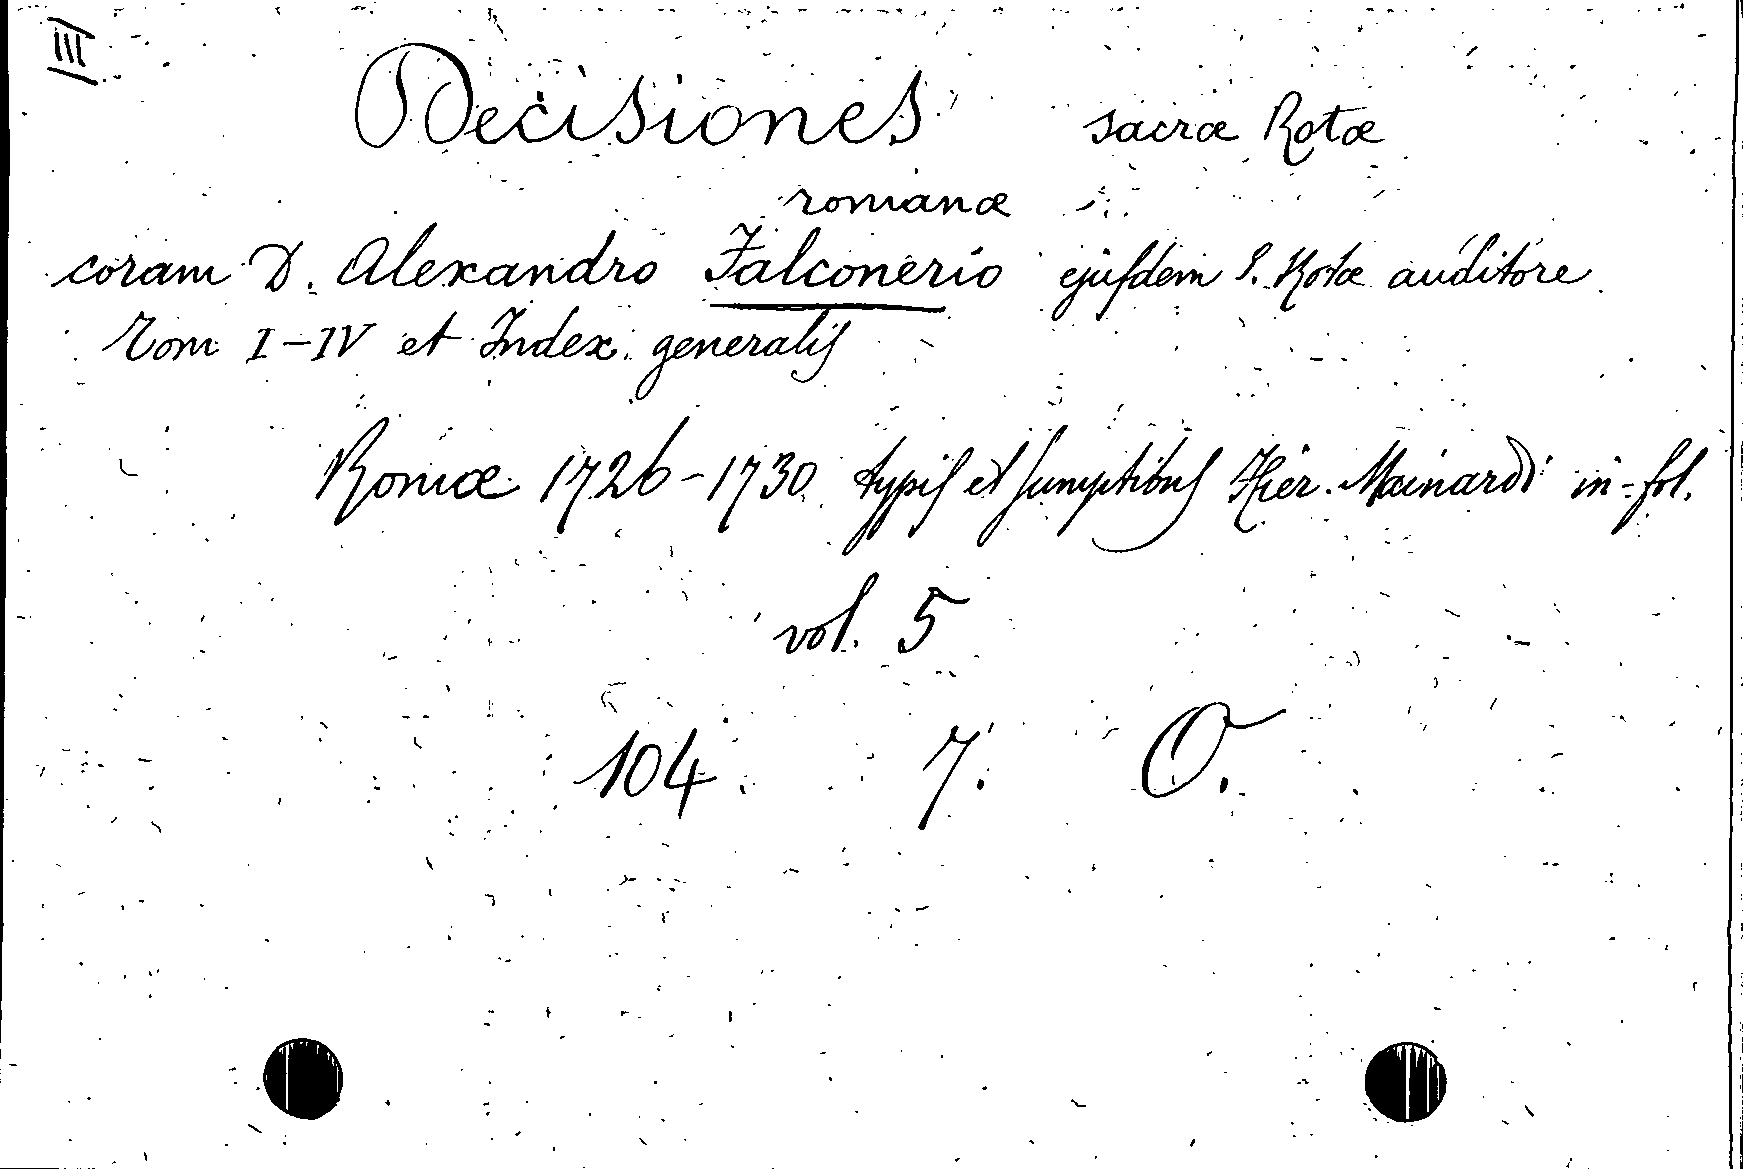 III
Decisiones sacræ Rotæ
romanæ
coram D. Alexandro Falconerio ejuſdem S. Rotæ auditore
Tom I-IV et Index generalis
Romæ 1726-1730 typis et sumptibus Hier. Mainardi in-fol.
vol. 5
104. 7. O.